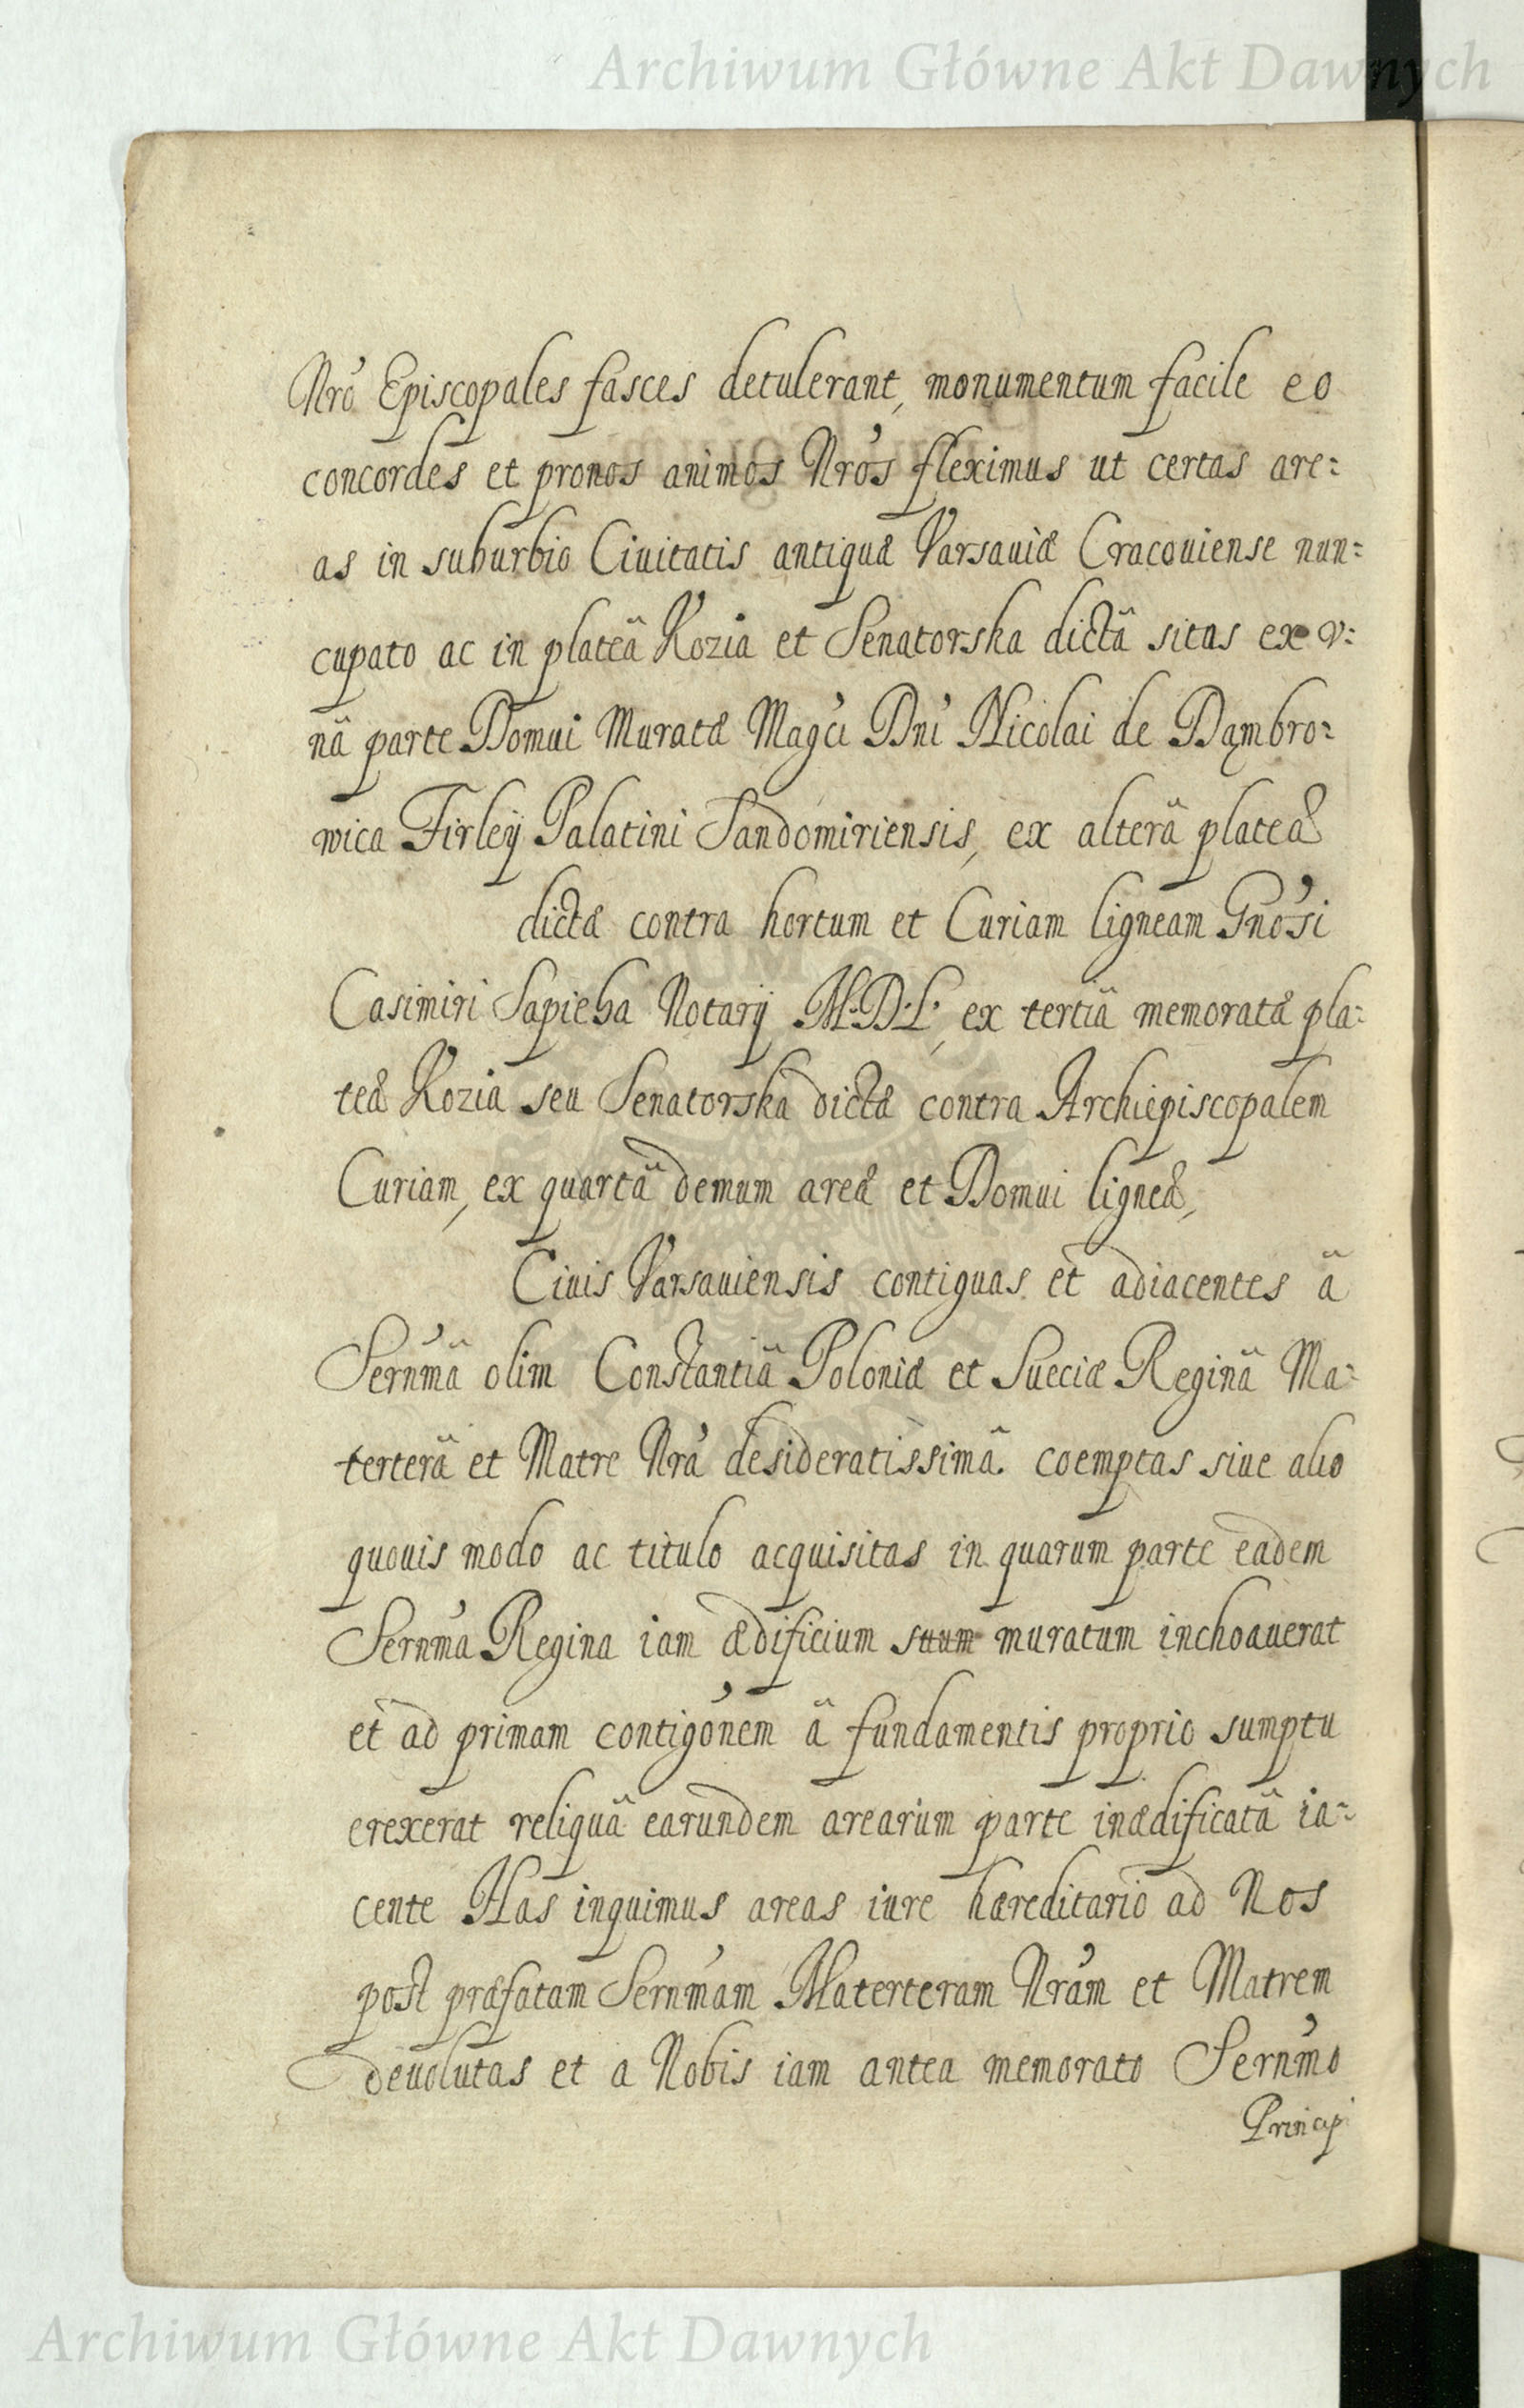 Archiwum Główne Akt Dawnych
Nro Episcopales fasces detulerant, monumentum facile eo
concordes et pronos animos Nros fleximus ut certas are:
as in suburbio Ciuitatis antiquæ Varsauiæ Cracouiense nun:
cupato ac in plateâ Kozia et Senatorska dictâ sitas ex v:
nâ parte Domui Muratæ Magci Dni Nicolai de Dąmbro:
wica Firleÿ Palatini Sandomiriensis, ex alterâ plateæ
dictæ contra hortum et Curiam ligneam Gnosi
Casimiri Sapieha Notarÿ M.D.L., ex tertiâ memoratæ pla:
teæ Kozia seu Senatorska dictæ contra Archiepiscopalem
Curiam, ex quartâ demum areæ et Domui ligneæ,
Ciuis Varsauiensis contiguas et adiacentes â
Sernmâ olim Constantiâ Poloniæ et Sueciæ Reginâ Ma:
terterâ et Matre Nrâ desideratissimâ coemptas siue alio
quouis modo ac titulo acquisitas in quarum parte eadem
Sernma Regina iam ædificium suum muratum inchoauerat
et ad primam contigonem â fundamentis proprio sumptu
erexerat reliquâ earundem arearum parte inædificatâ ia:
cente Has inquimus areas iure hæreditario ad Nos
post præfatam Sernmam Materteram Nram et Matrem
deuolutas et a Nobis iam antea memorato Sernmo
Princip
Archiwum Główne Akt Dawnych